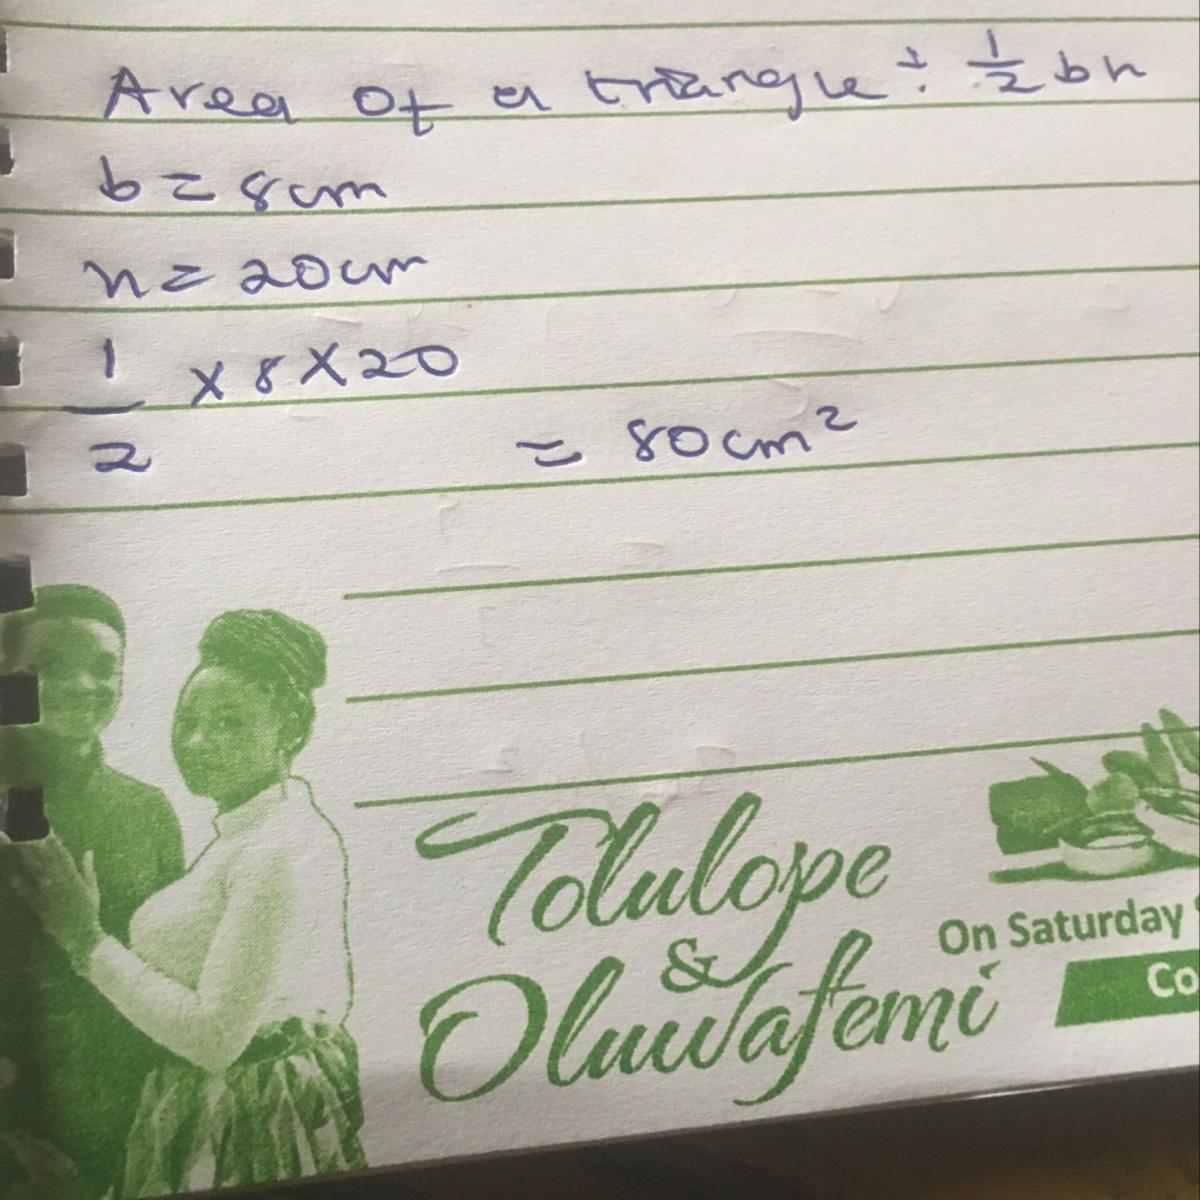 Area of a triangle ÷ 1/2 bh
b = 8cm
h = 20cm
1/2 × 8 × 20
= 80cm²
Tolulope
&
Oluwafemi
On Saturday
Co